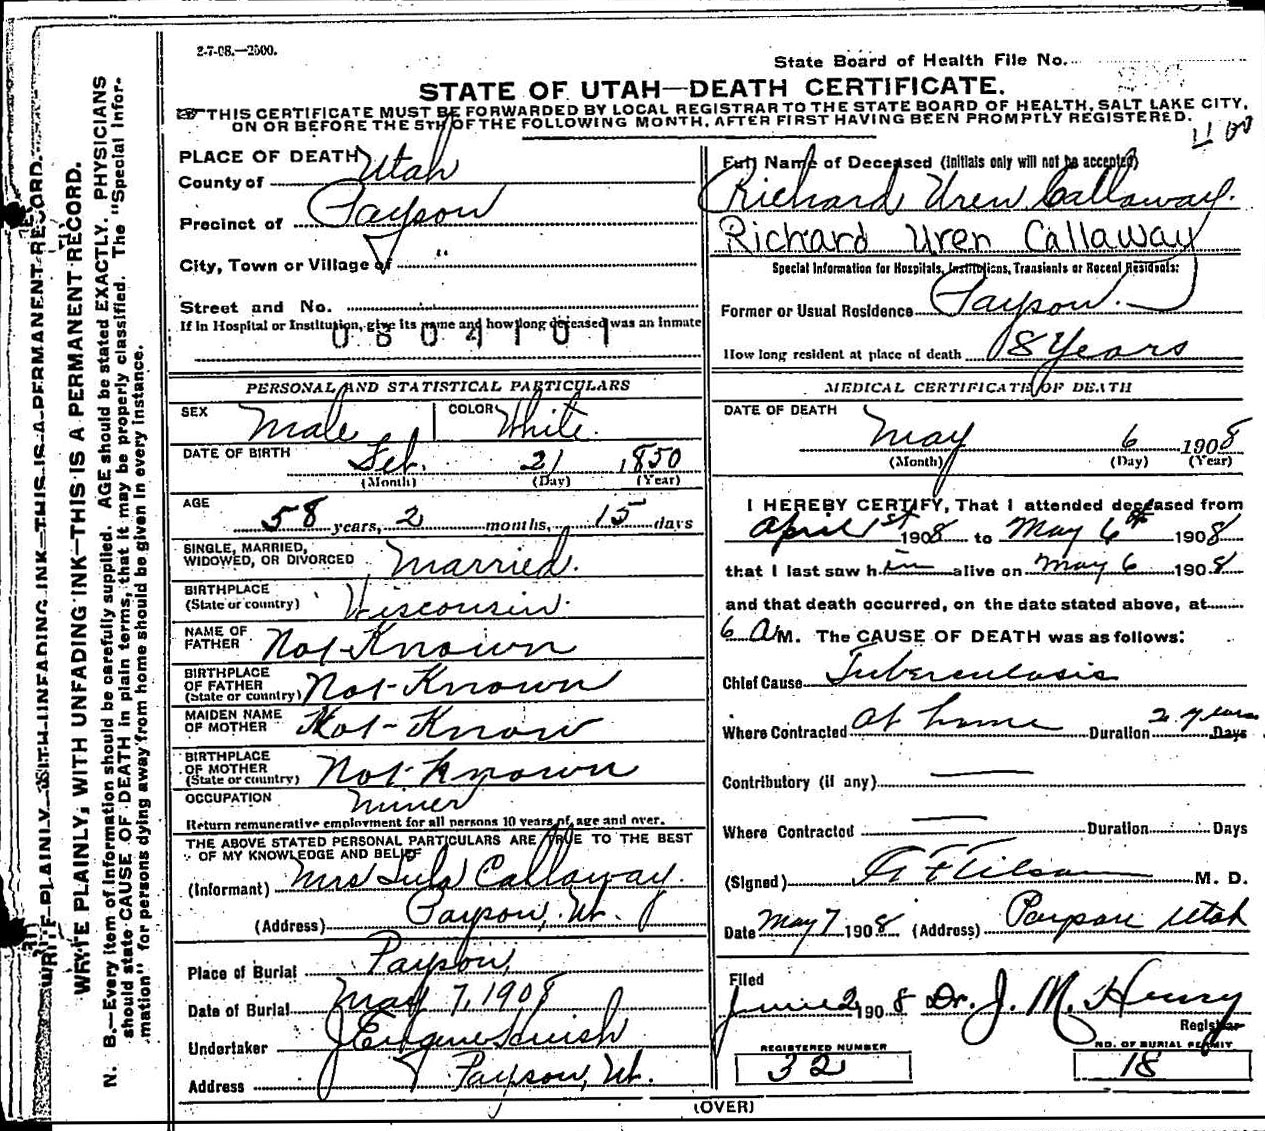 2-7-08.—2500.
State Board of Health File No.
STATE OF UTAH—DEATH CERTIFICATE.
THIS CERTIFICATE MUST BE FORWARDED BY LOCAL REGISTRAR TO THE STATE BOARD OF HEALTH, SALT LAKE CITY,
ON OR BEFORE THE 5TH OF THE FOLLOWING MONTH, AFTER FIRST HAVING BEEN PROMPTLY REGISTERED.
WRITE PLAINLY, WITH UNFADING INK—THIS IS A PERMANENT RECORD.
WRITE PLAINLY, WITH UNFADING INK—THIS IS A PERMANENT RECORD.
N. B.—Every item of information should be carefully supplied. AGE should be stated EXACTLY. PHYSICIANS
should state CAUSE OF DEATH in plain terms, that it may be properly classified. The "Special Infor-
mation" for persons dying away from home should be given in every instance.
PLACE OF DEATH
County of Utah
Precinct of Payson
City, Town or Village of "
Street and No.
If in Hospital or Institution, give its name and how long deceased was an inmate
0804101
PERSONAL AND STATISTICAL PARTICULARS
SEX Male COLOR White.
DATE OF BIRTH Feb. 21 1850
(Month) (Day) (Year)
AGE 58 years, 2 months, 15 days
SINGLE, MARRIED,
WIDOWED, OR DIVORCED Married.
BIRTHPLACE
(State or country) Wisconsin.
NAME OF
FATHER Not Known
BIRTHPLACE
OF FATHER
(State or country) Not Known
MAIDEN NAME
OF MOTHER Not Know
BIRTHPLACE
OF MOTHER
(State or country) Not Known
OCCUPATION Miner
Return remunerative employment for all persons 10 years of age and over.
THE ABOVE STATED PERSONAL PARTICULARS ARE TRUE TO THE BEST
OF MY KNOWLEDGE AND BELIEF
(Informant) Mrs Lula Callaway.
(Address) Payson, Ut.
Place of Burial Payson,
Date of Burial May 7, 1908
Undertaker J Eugene
Address Payson, Ut.
Full Name of Deceased (Initials only will not be accepted)
Richard Uren Callaway.
Richard Uren Callaway
Special Information for Hospitals, Institutions, Transients or Recent Residents:
Former or Usual Residence Payson.
How long resident at place of death 18 Years
MEDICAL CERTIFICATE OF DEATH
DATE OF DEATH
May 6 1908
(Month) (Day) (Year)
I HEREBY CERTIFY, That I attended deceased from
April 1st 1908 to May 6th 1908
that I last saw him alive on May 6 1908
and that death occurred, on the date stated above, at
6 A M. The CAUSE OF DEATH was as follows:
Chief Cause Tuberculosis
Where Contracted At home Duration 2 years Days
Contributory (if any) —
Where Contracted — Duration Days
(Signed) M. D.
Date May 7 1908 (Address) Payson Utah
Filed
June 2 1908 Dr. J. M. Henry
Registrar
REGISTERED NUMBER
32
NO. OF BURIAL PERMIT
18
(OVER)